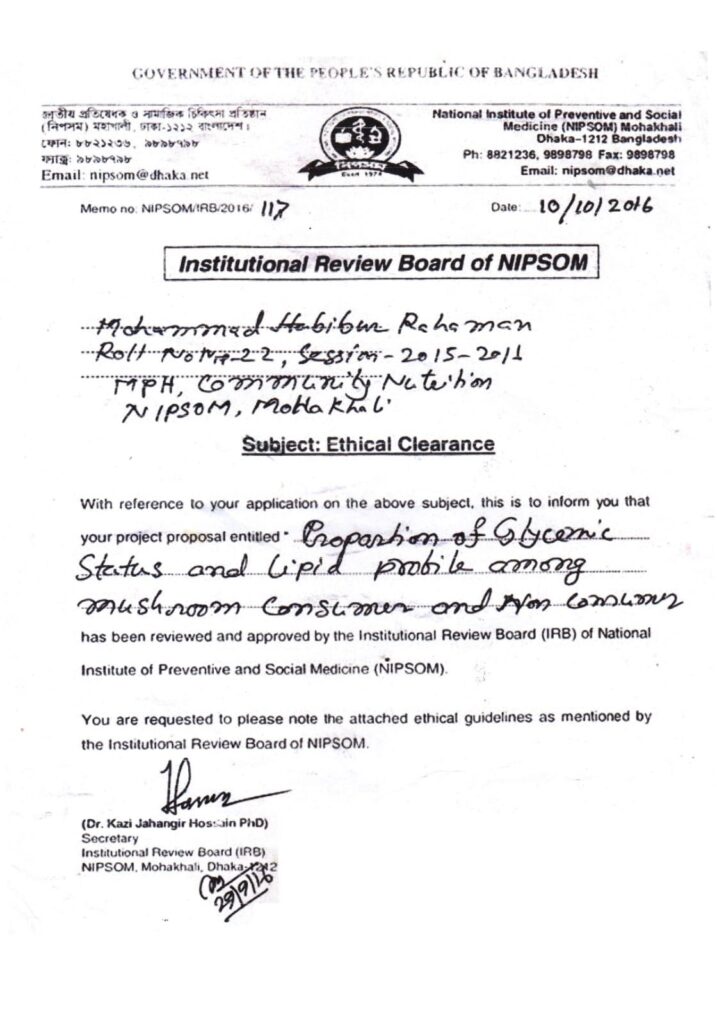 GOVERNMENT OF THE PEOPLE'S REPUBLIC OF BANGLADESH
জাতীয় প্রতিষেধক ও সামাজিক চিকিৎসা প্রতিষ্ঠান
(নিপসম) মহাখালী, ঢাকা-১২১২ বাংলাদেশ।
ফোন: ৮৮২১২৩৬, ৯৮৯৮৭৯৮
ফ্যাক্স: ৯৮৯৮৭৯৮
Email: nipsom@dhaka.net
National Institute of Preventive and Social
Medicine (NIPSOM) Mohakhali
Dhaka-1212 Bangladesh
Ph: 8821236, 9898798 Fax: 9898798
Email: nipsom@dhaka.net
Estd 1974
Memo no: NIPSOM/IRB/2016/ 117
Date: 10/10/2016
Institutional Review Board of NIPSOM
Mohammad Habibur Rahaman
Roll 22, Session-2015-2011
MPH, Community Nutrition
NIPSOM, Mohakhali
Subject: Ethical Clearance
With reference to your application on the above subject, this is to inform you that
your project proposal entitled " Proportion of Glycemic
Status and Lipid profile among
mushroom Consumer and Non Consumer
has been reviewed and approved by the Institutional Review Board (IRB) of National
Institute of Preventive and Social Medicine (NIPSOM).
You are requested to please note the attached ethical guidelines as mentioned by
the Institutional Review Board of NIPSOM.
(Dr. Kazi Jahangir Hossain PhD)
Secretary
Institutional Review Board (IRB)
NIPSOM, Mohakhali, Dhaka-1212
29/9/16